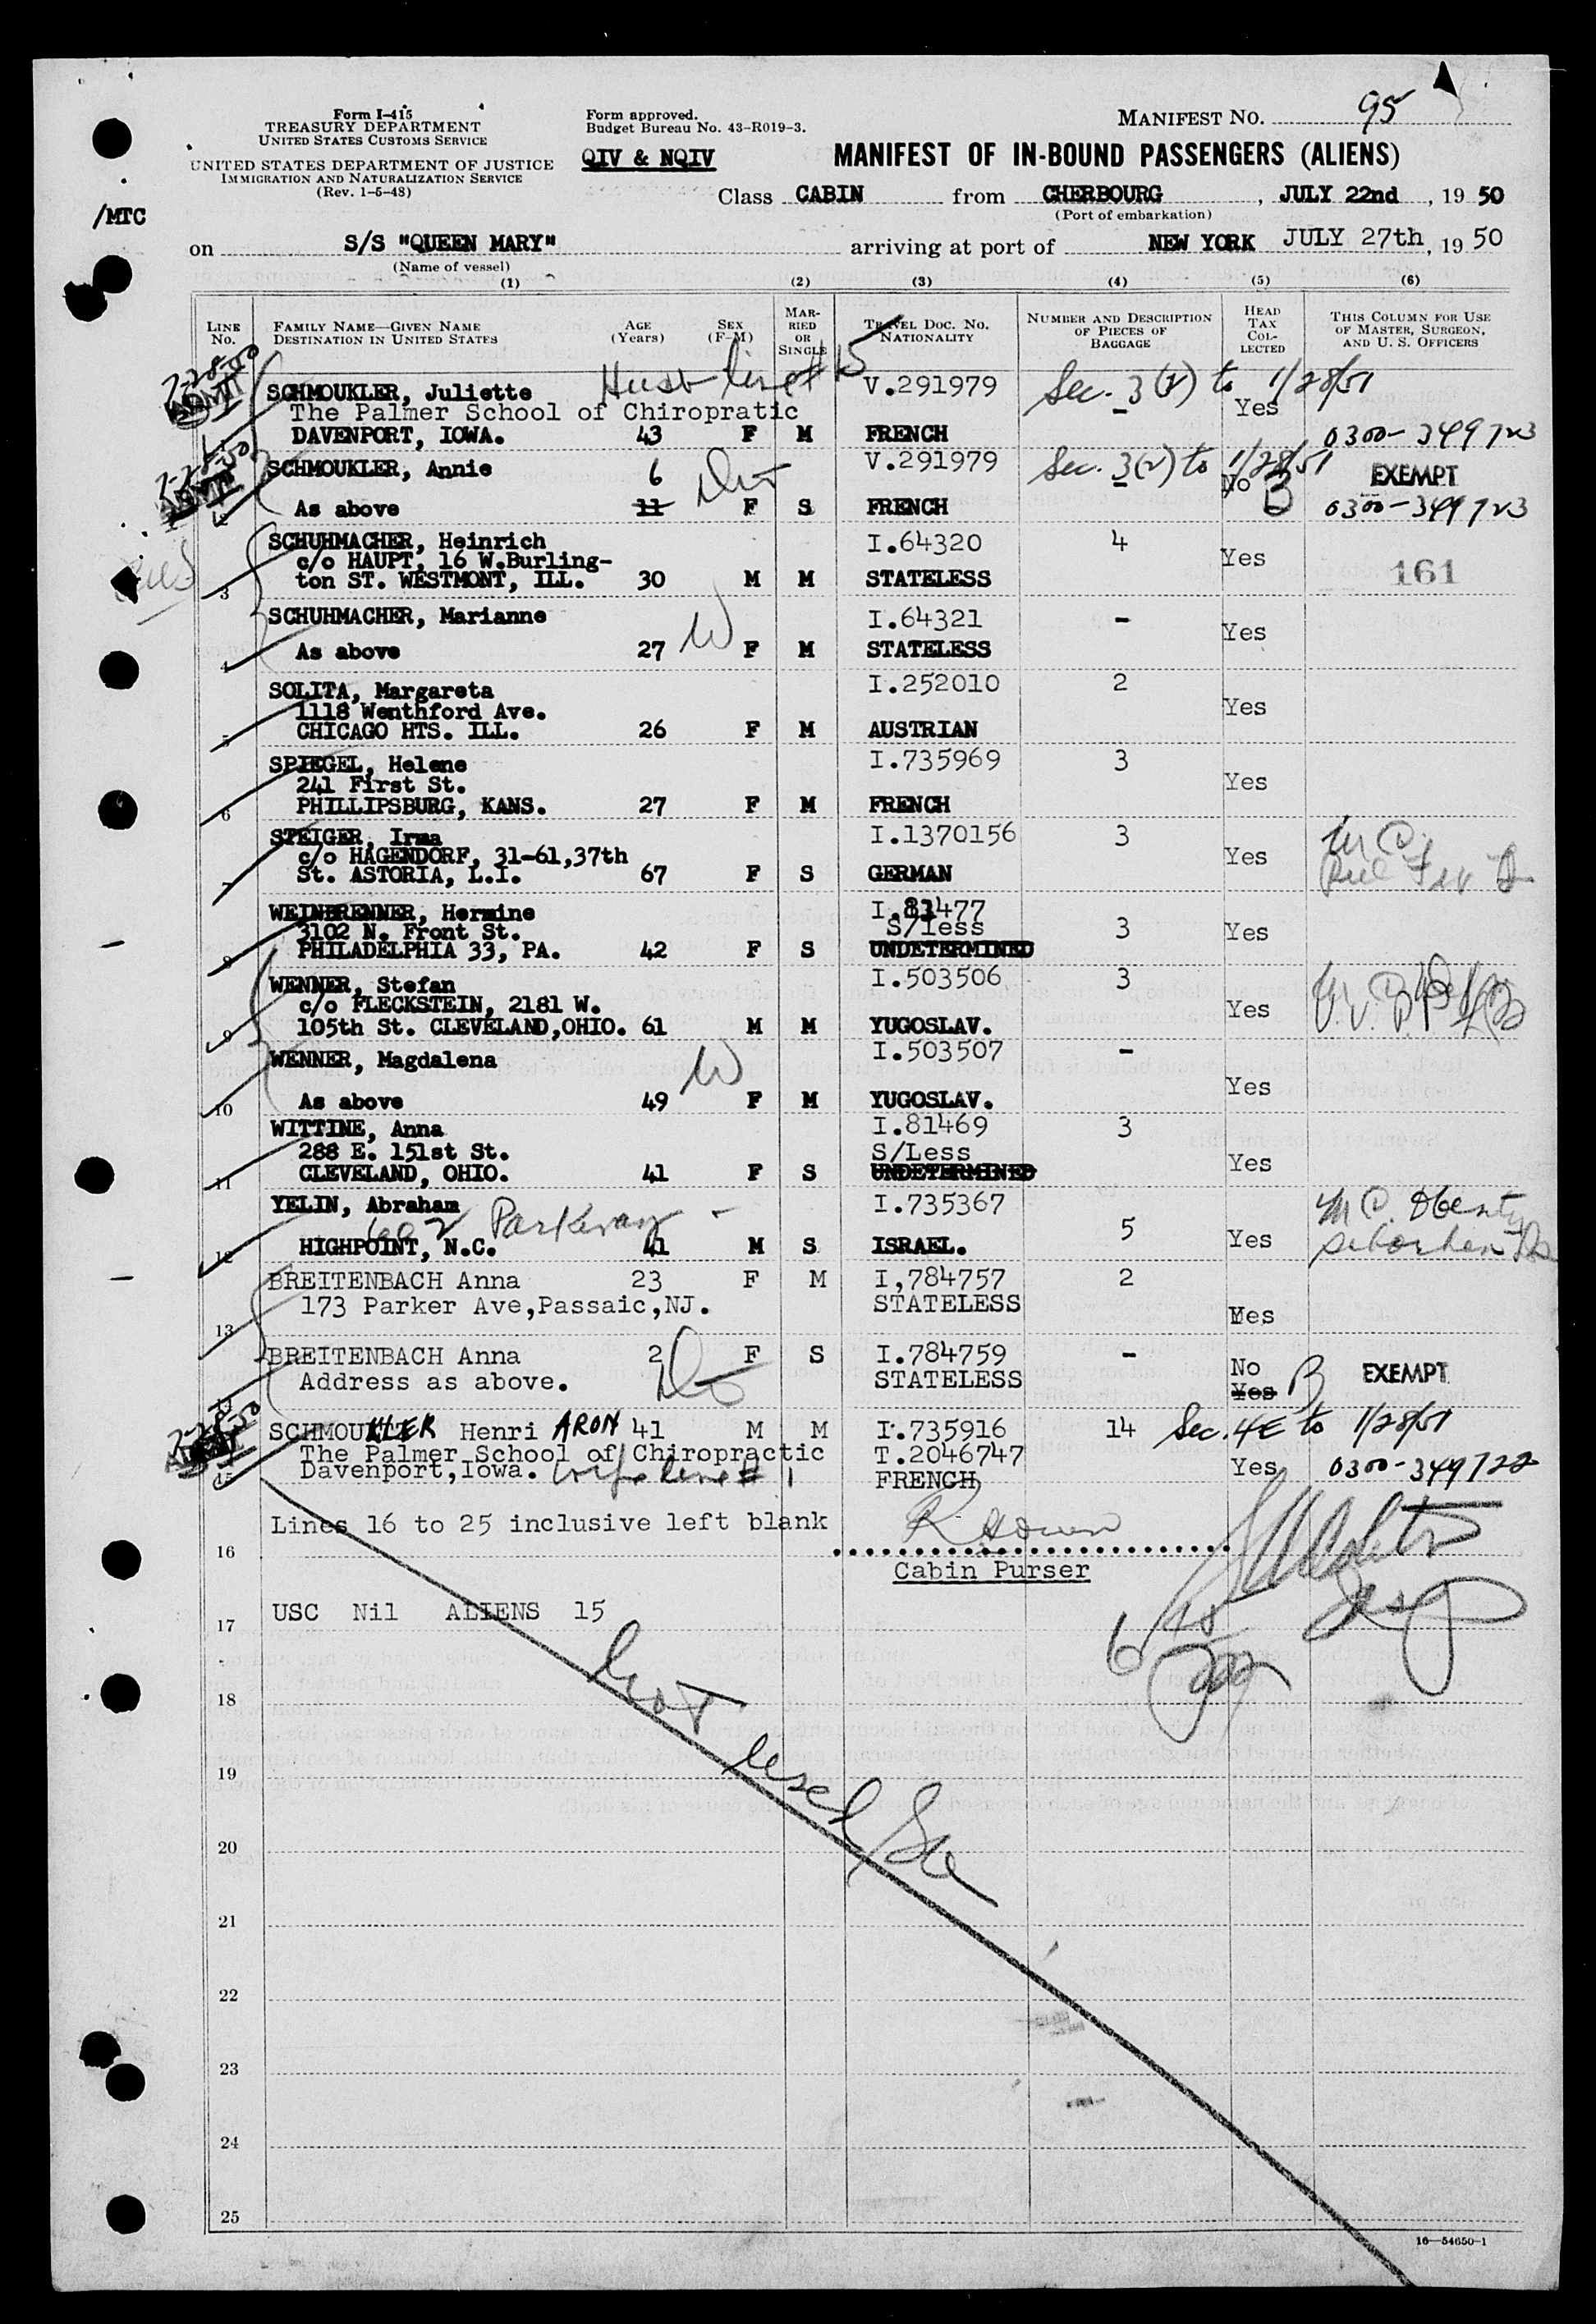 Form I-415
TREASURY DEPARTMENT
UNITED STATES CUSTOMS SERVICE
UNITED STATES DEPARTMENT OF JUSTICE
IMMIGRATION AND NATURALIZATION SERVICE
(Rev. 1-5-48)
Form approved.
Budget Bureau No. 43-R019-3.
QIV & NQIV
MANIFEST NO. 95
MANIFEST OF IN-BOUND PASSENGERS (ALIENS)
Class CABIN from CHERBOURG, JULY 22nd, 19 50
(Port of embarkation)
/MTC
on S/S "QUEEN MARY" arriving at port of NEW YORK JULY 27th, 19 50
(Name of vessel)
(1) (2) (3) (4) (5) (6)
LINE No.
FAMILY NAME—GIVEN NAME
DESTINATION IN UNITED STATES
AGE (Years)
SEX (F-M)
MARRIED OR SINGLE
TRAVEL DOC. NO.
NATIONALITY
NUMBER AND DESCRIPTION OF PIECES OF BAGGAGE
HEAD TAX COLLECTED
THIS COLUMN FOR USE OF MASTER, SURGEON, AND U. S. OFFICERS
7-28-50
ADMIT
SCHMOUKLER, Juliette Husb line # 15 V.291979 - Sec. 3(2) to 1/28/51
The Palmer School of Chiropratic Yes
DAVENPORT, IOWA. 43 F M FRENCH 0300-349723
7-28-50
ADMIT
SCHMOUKLER, Annie 6 V.291979 - Sec. 3(2) to 1/28/51
No B EXEMPT
As above 11 F S FRENCH 0300-349723
SCHUHMACHER, Heinrich I.64320 4
c/o HAUPT, 16 W.Burling- Yes 161
3 ton ST. WESTMONT, ILL. 30 M M STATELESS
SCHUHMACHER, Marianne W I.64321 -
Yes
4 As above 27 F M STATELESS
SOLITA, Margareta I.252010 2
1118 Wenthford Ave. Yes
5 CHICAGO HTS. ILL. 26 F M AUSTRIAN
SPIEGEL, Helene I.735969 3
241 First St. Yes
6 PHILLIPSBURG, KANS. 27 F M FRENCH
STEIGER, Irma I.1370156 3
c/o HAGENDORF, 31-61,37th Yes
7 St. ASTORIA, L.I. 67 F S GERMAN
WEINBRENNER, Hermine I.81477
3102 N. Front St. S/less 3 Yes
8 PHILADELPHIA 33, PA. 42 F S UNDETERMINED
WENNER, Stefan I.503506 3
c/o FLECKSTEIN, 2181 W. Yes
9 105th St. CLEVELAND,OHIO. 61 M M YUGOSLAV.
WENNER, Magdalena W I.503507 -
Yes
10 As above 49 F M YUGOSLAV.
WITTINE, Anna I.81469 3
288 E. 151st St. S/Less Yes
11 CLEVELAND, OHIO. 41 F S UNDETERMINED
YELIN, Abraham I.735367
Parkway - 5 Yes
12 HIGHPOINT, N.C. 41 M S ISRAEL.
BREITENBACH Anna 23 F M I,784757 2
173 Parker Ave,Passaic,NJ. STATELESS
13 Yes
BREITENBACH Anna 2 F S I.784759 -
Address as above. STATELESS No Yes B EXEMPT
7-28-50
ADMIT
SCHMOUKLER Henri ARON 41 M M I.735916 14 Sec. 4E to 1/28/51
The Palmer School of Chiropractic T.2046747
15 Davenport,Iowa. wife line # 1 FRENCH Yes 0300-349722
Lines 16 to 25 inclusive left blank
16
Cabin Purser
USC Nil ALIENS 15
17
18
not used
19
20
21
22
23
24
25
16—54650-1